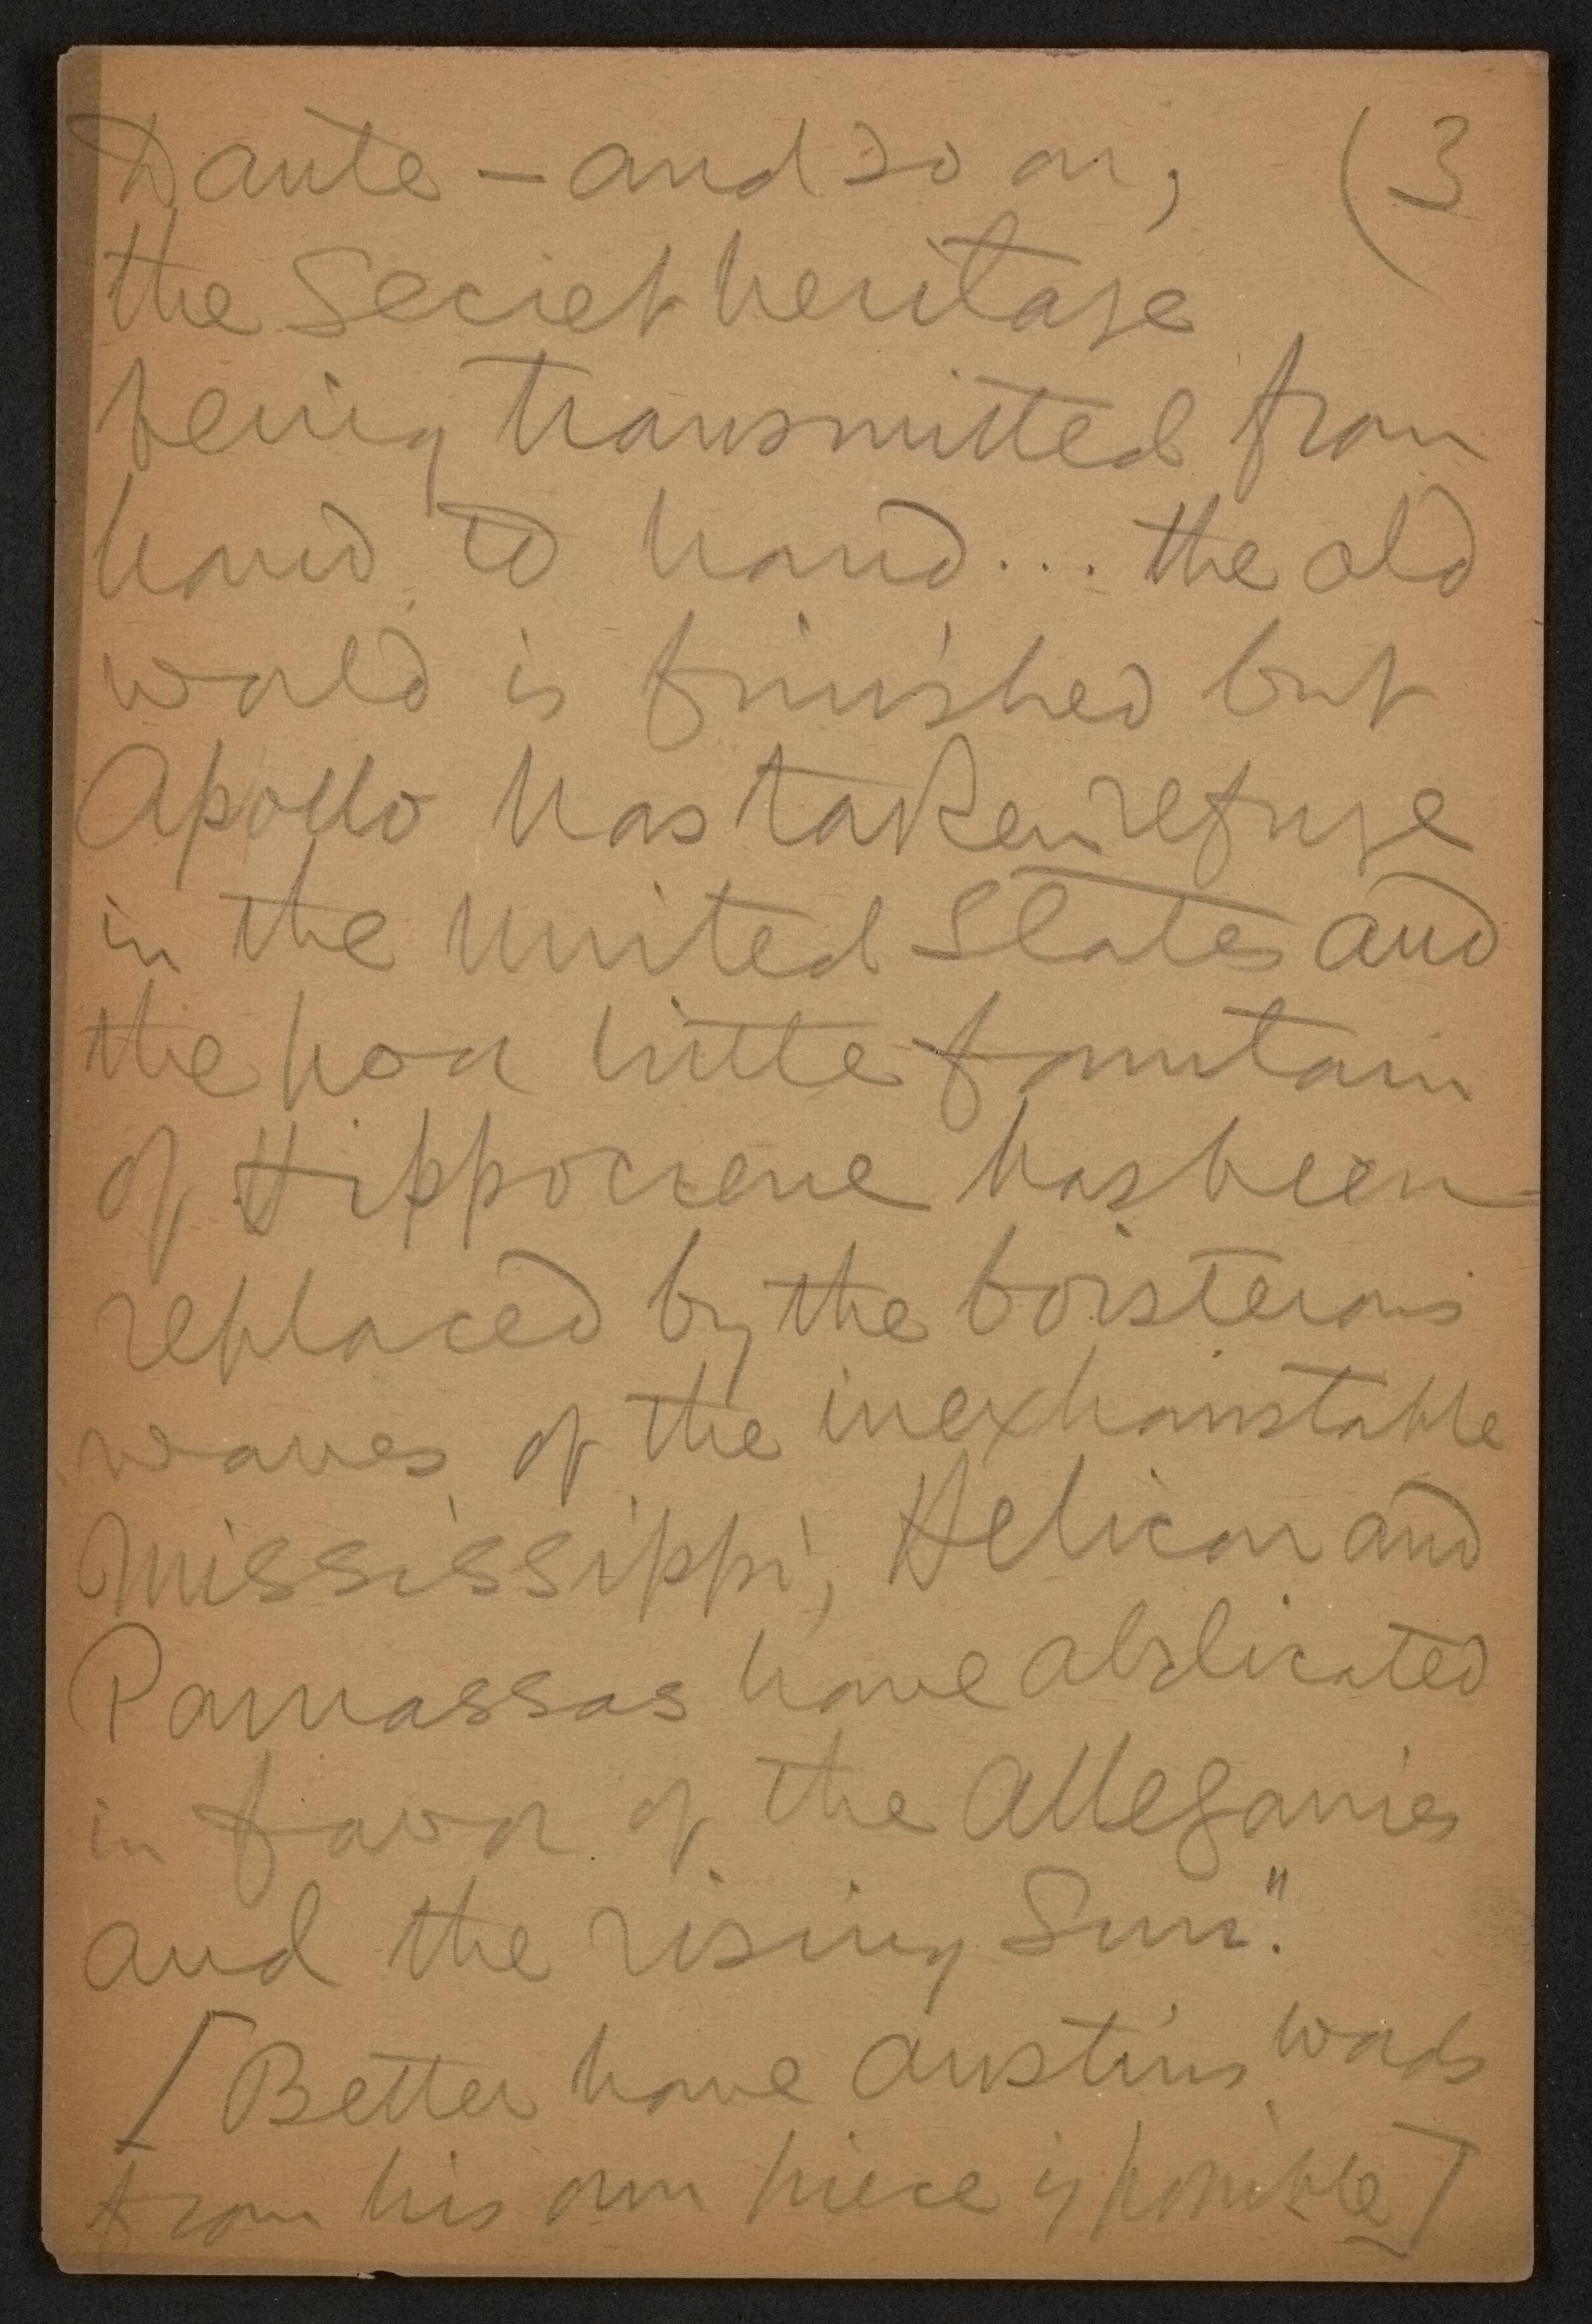 Dante – and so on, (3
the Secret heritage
being transmitted from
hand to hand... the old
world is finished but
Apollo has taken refuge
in the United States and
the poor little fountain
of Hippocrene has been
replaced by the boisterous
waves of the inexhaustable
Mississippi, Helicon and
Parnassas have abdicated
in favor of the Alleganies
and the rising Sun".
[Better have Austin's words
from his own piece if possible]